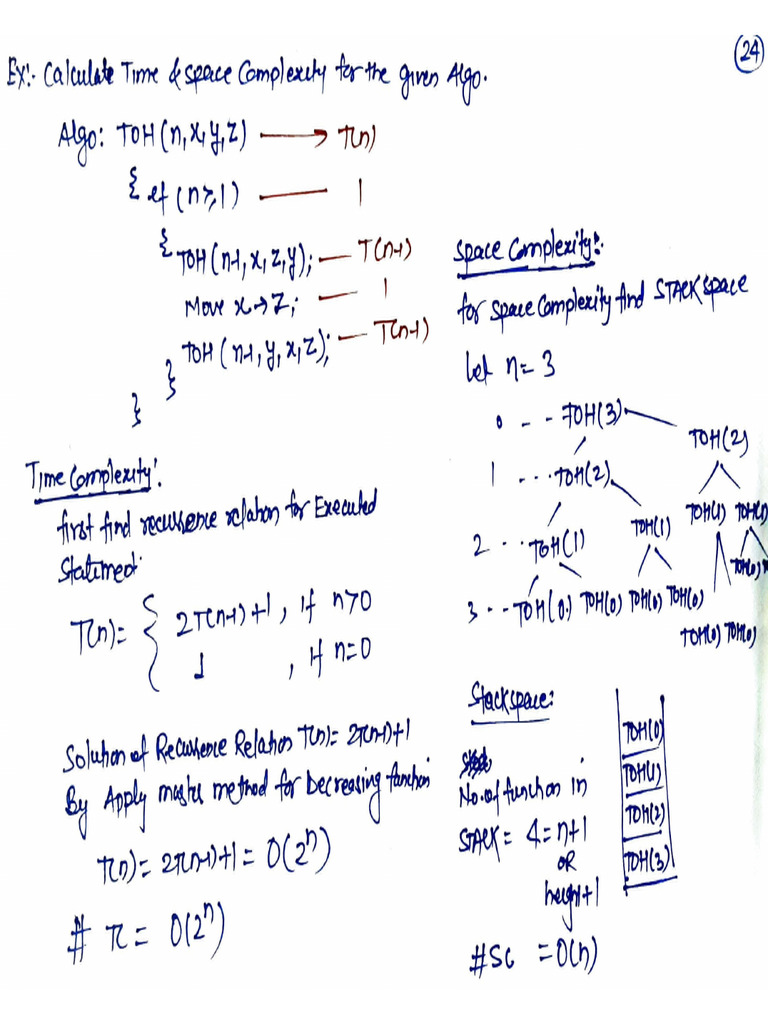 24
Ex:- Calculate Time & space Complexity for the given Algo.
Algo: TOH(n,x,y,z) → T(n)
{ if (n≥1) — 1
{ TOH(n-1,x,z,y); — T(n-1)
Move x→z; — 1
TOH(n-1,y,x,z); — T(n-1)
}
}
Time Complexity:
first find recursence relation for Executed
Statmed:
T(n)= { 2T(n-1)+1, if n>0
1, if n=0
Solution of Recursence Relation T(n)= 2T(n-1)+1
By Apply master method for Decreasing function
T(n)= 2T(n-1)+1 = O(2ⁿ)
# TC = O(2ⁿ)
Space Complexity:-
for space Complexity find STACK space
Let n=3
0 - - TOH(3) TOH(2)
1 ... TOH(2)
2 ... TOH(1) TOH(1) TOH(1) TOH(1)
3 ... TOH(0) TOH(0) TOH(0) TOH(0) TOH(0)
TOH(0) TOH(0)
Stack space:
No. of function in
STACK = 4 = n+1
OR
height+1
TOH(0)
TOH(1)
TOH(2)
TOH(3)
# SC = O(n)